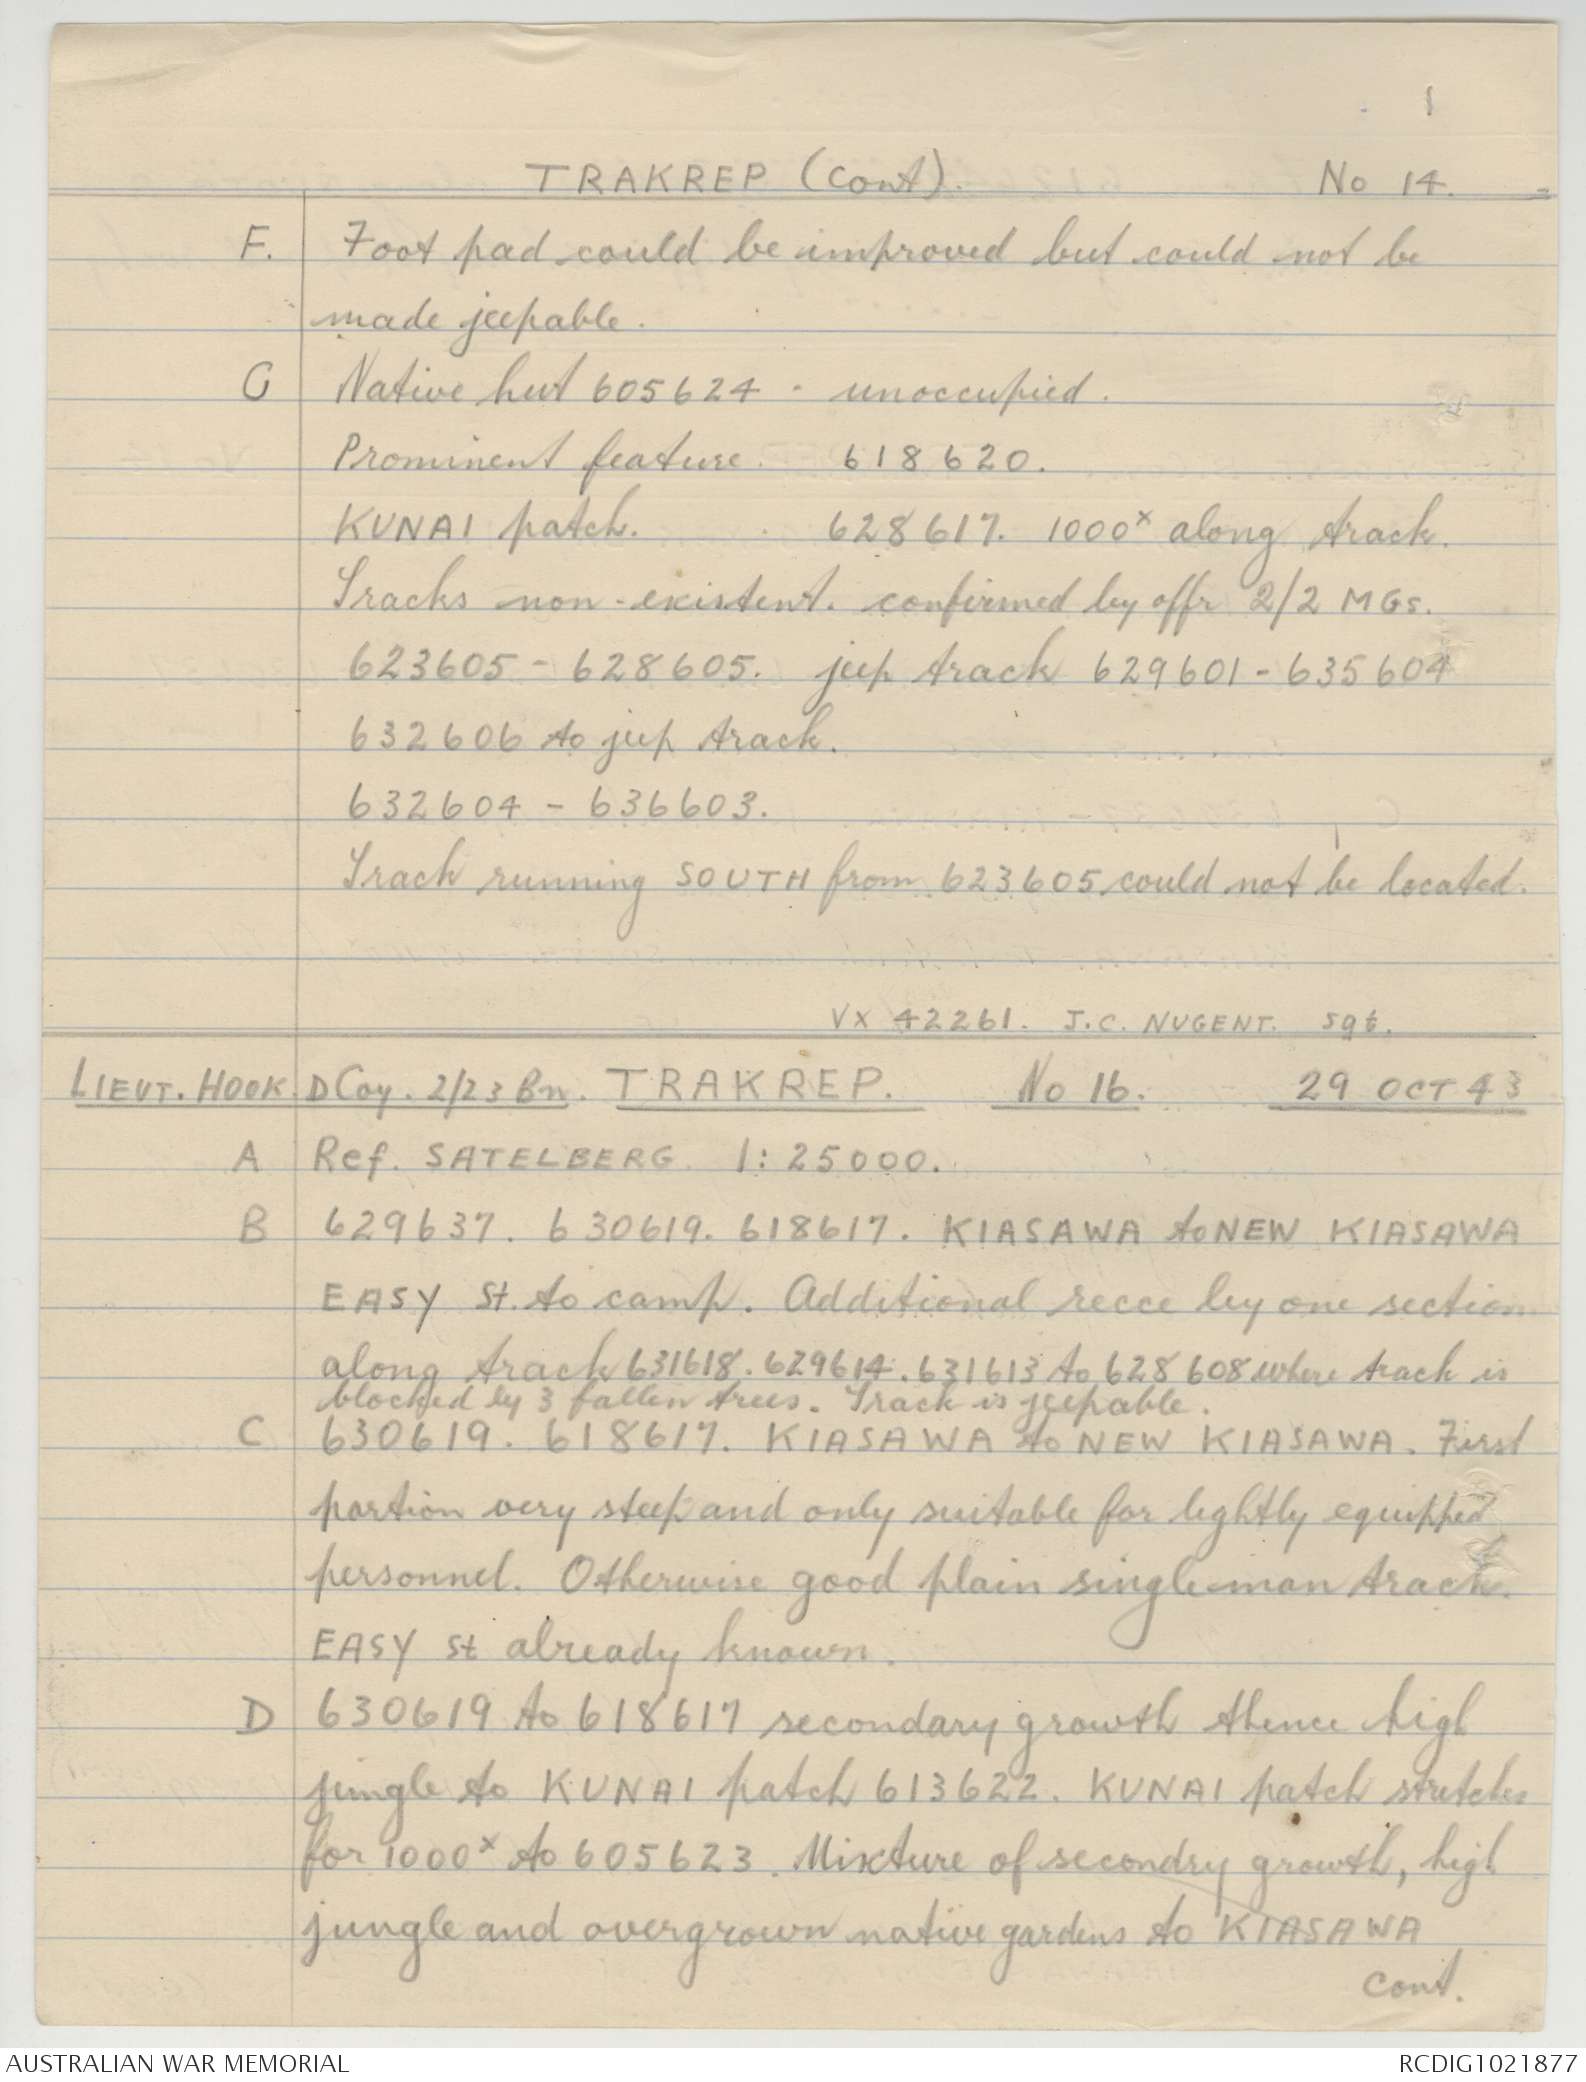 TRAKREP (Cont). No 14.
F. Foot pad could be improved but could not be
made jeepable.
G Native hut 605624 - unoccupied.
Prominent feature. 618620.
KUNAI patch. 628617. 1000x along track.
Tracks non-existent. confirmed by offr 2/2 MGs.
623605 - 628605. jeep track 629601 - 635604
632606 to jeep track.
632604 - 636603.
Track running SOUTH from 623605 could not be located.
VX 42261. J.C. NUGENT. Sgt.
LIEUT. HOOK. D Coy. 2/23 Bn. TRAKREP. No 16. 29 OCT 43
A Ref. SATELBERG. 1:25000.
B 629637. 630619. 618617. KIASAWA to NEW KIASAWA
EASY St. to camp. Additional recce by one section
along track 631618. 629614. 631613 to 628608 where track is
blocked by 3 fallen trees. Track is jeepable.
C 630619. 618617. KIASAWA to NEW KIASAWA. First
portion very steep and only suitable for lightly equipped
personnel. Otherwise good plain single man track.
EASY St already known.
D 630619 to 618617 secondary growth thence high
jungle to KUNAI patch 613622. KUNAI patch stretches
for 1000x to 605623. Mixture of secondry growth, high
jungle and overgrown native gardens to KIASAWA
Cont.
AUSTRALIAN WAR MEMORIAL RCDIG1021877